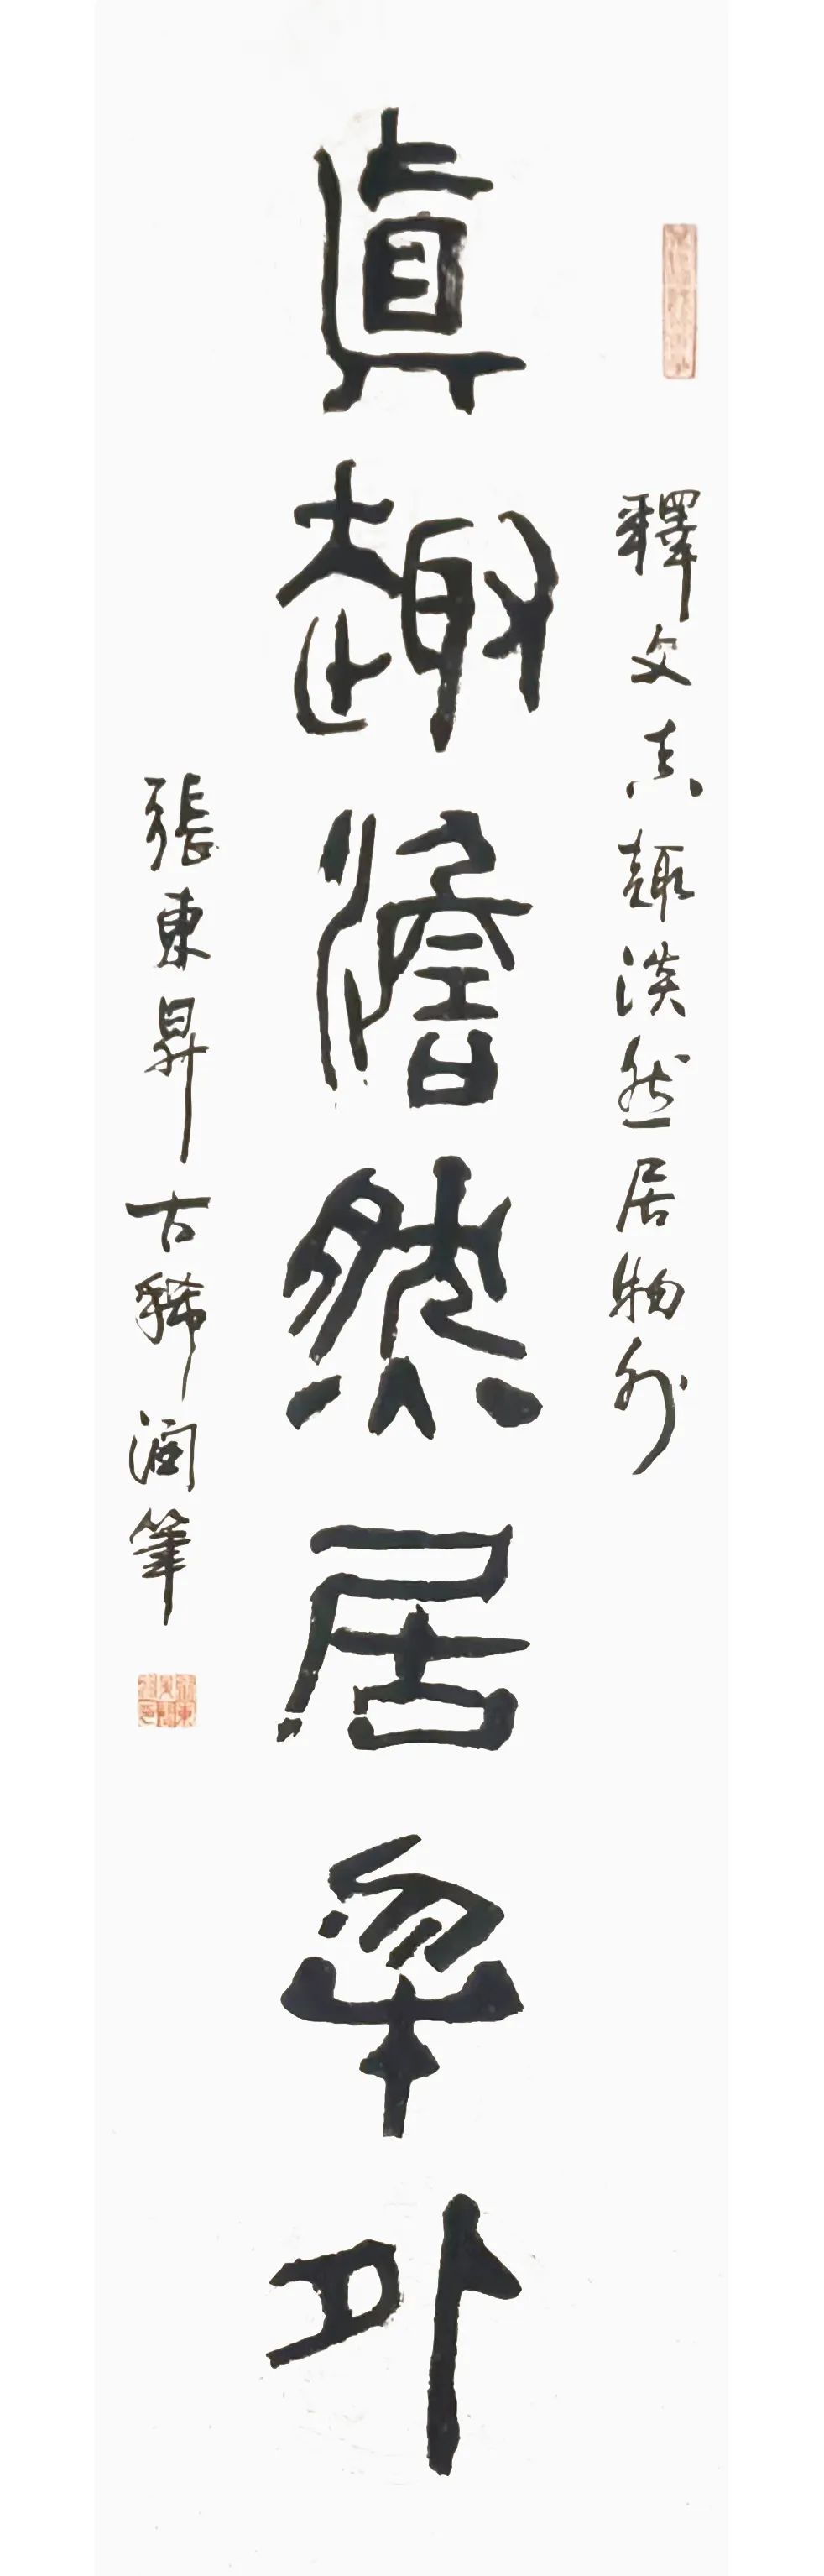 釋文真趣淡然居物外
眞趣澹然居物外
張東昇古稀潤筆